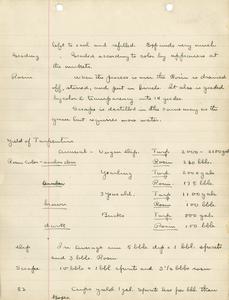 left to cool and refilled. Expands very much
Grading . Graded according to color by appearance at
the markets.
Rosin When the process is over the Rosin is drained
off, strained, and put in barrels. It also is graded
by color & transparency into 14 grades.
Scrape is distilled in the same way as the
gum but requires more water.
Yield of Turpentine
Virgin Dip. Turp 2000 - 2100 gals
Rosin Color - Rosin 260 bbls.
Yearling Turp 2000 gals
Rosin 175 bbls
3 year old. Turp 1100 gals
brown Rosin 100 bbls.
Bucks Turp 800 gals
dark Rosin 100 bbls
Dip In average on 5 bbls dip = 1 bbl. spirits
and 3 bbls Rosin
Scrape 10 bbls = 1 bbl spirits and 2 1/2 bbls rosin
52 Cups yield 1 gal. spirits less per bbl than
boxes